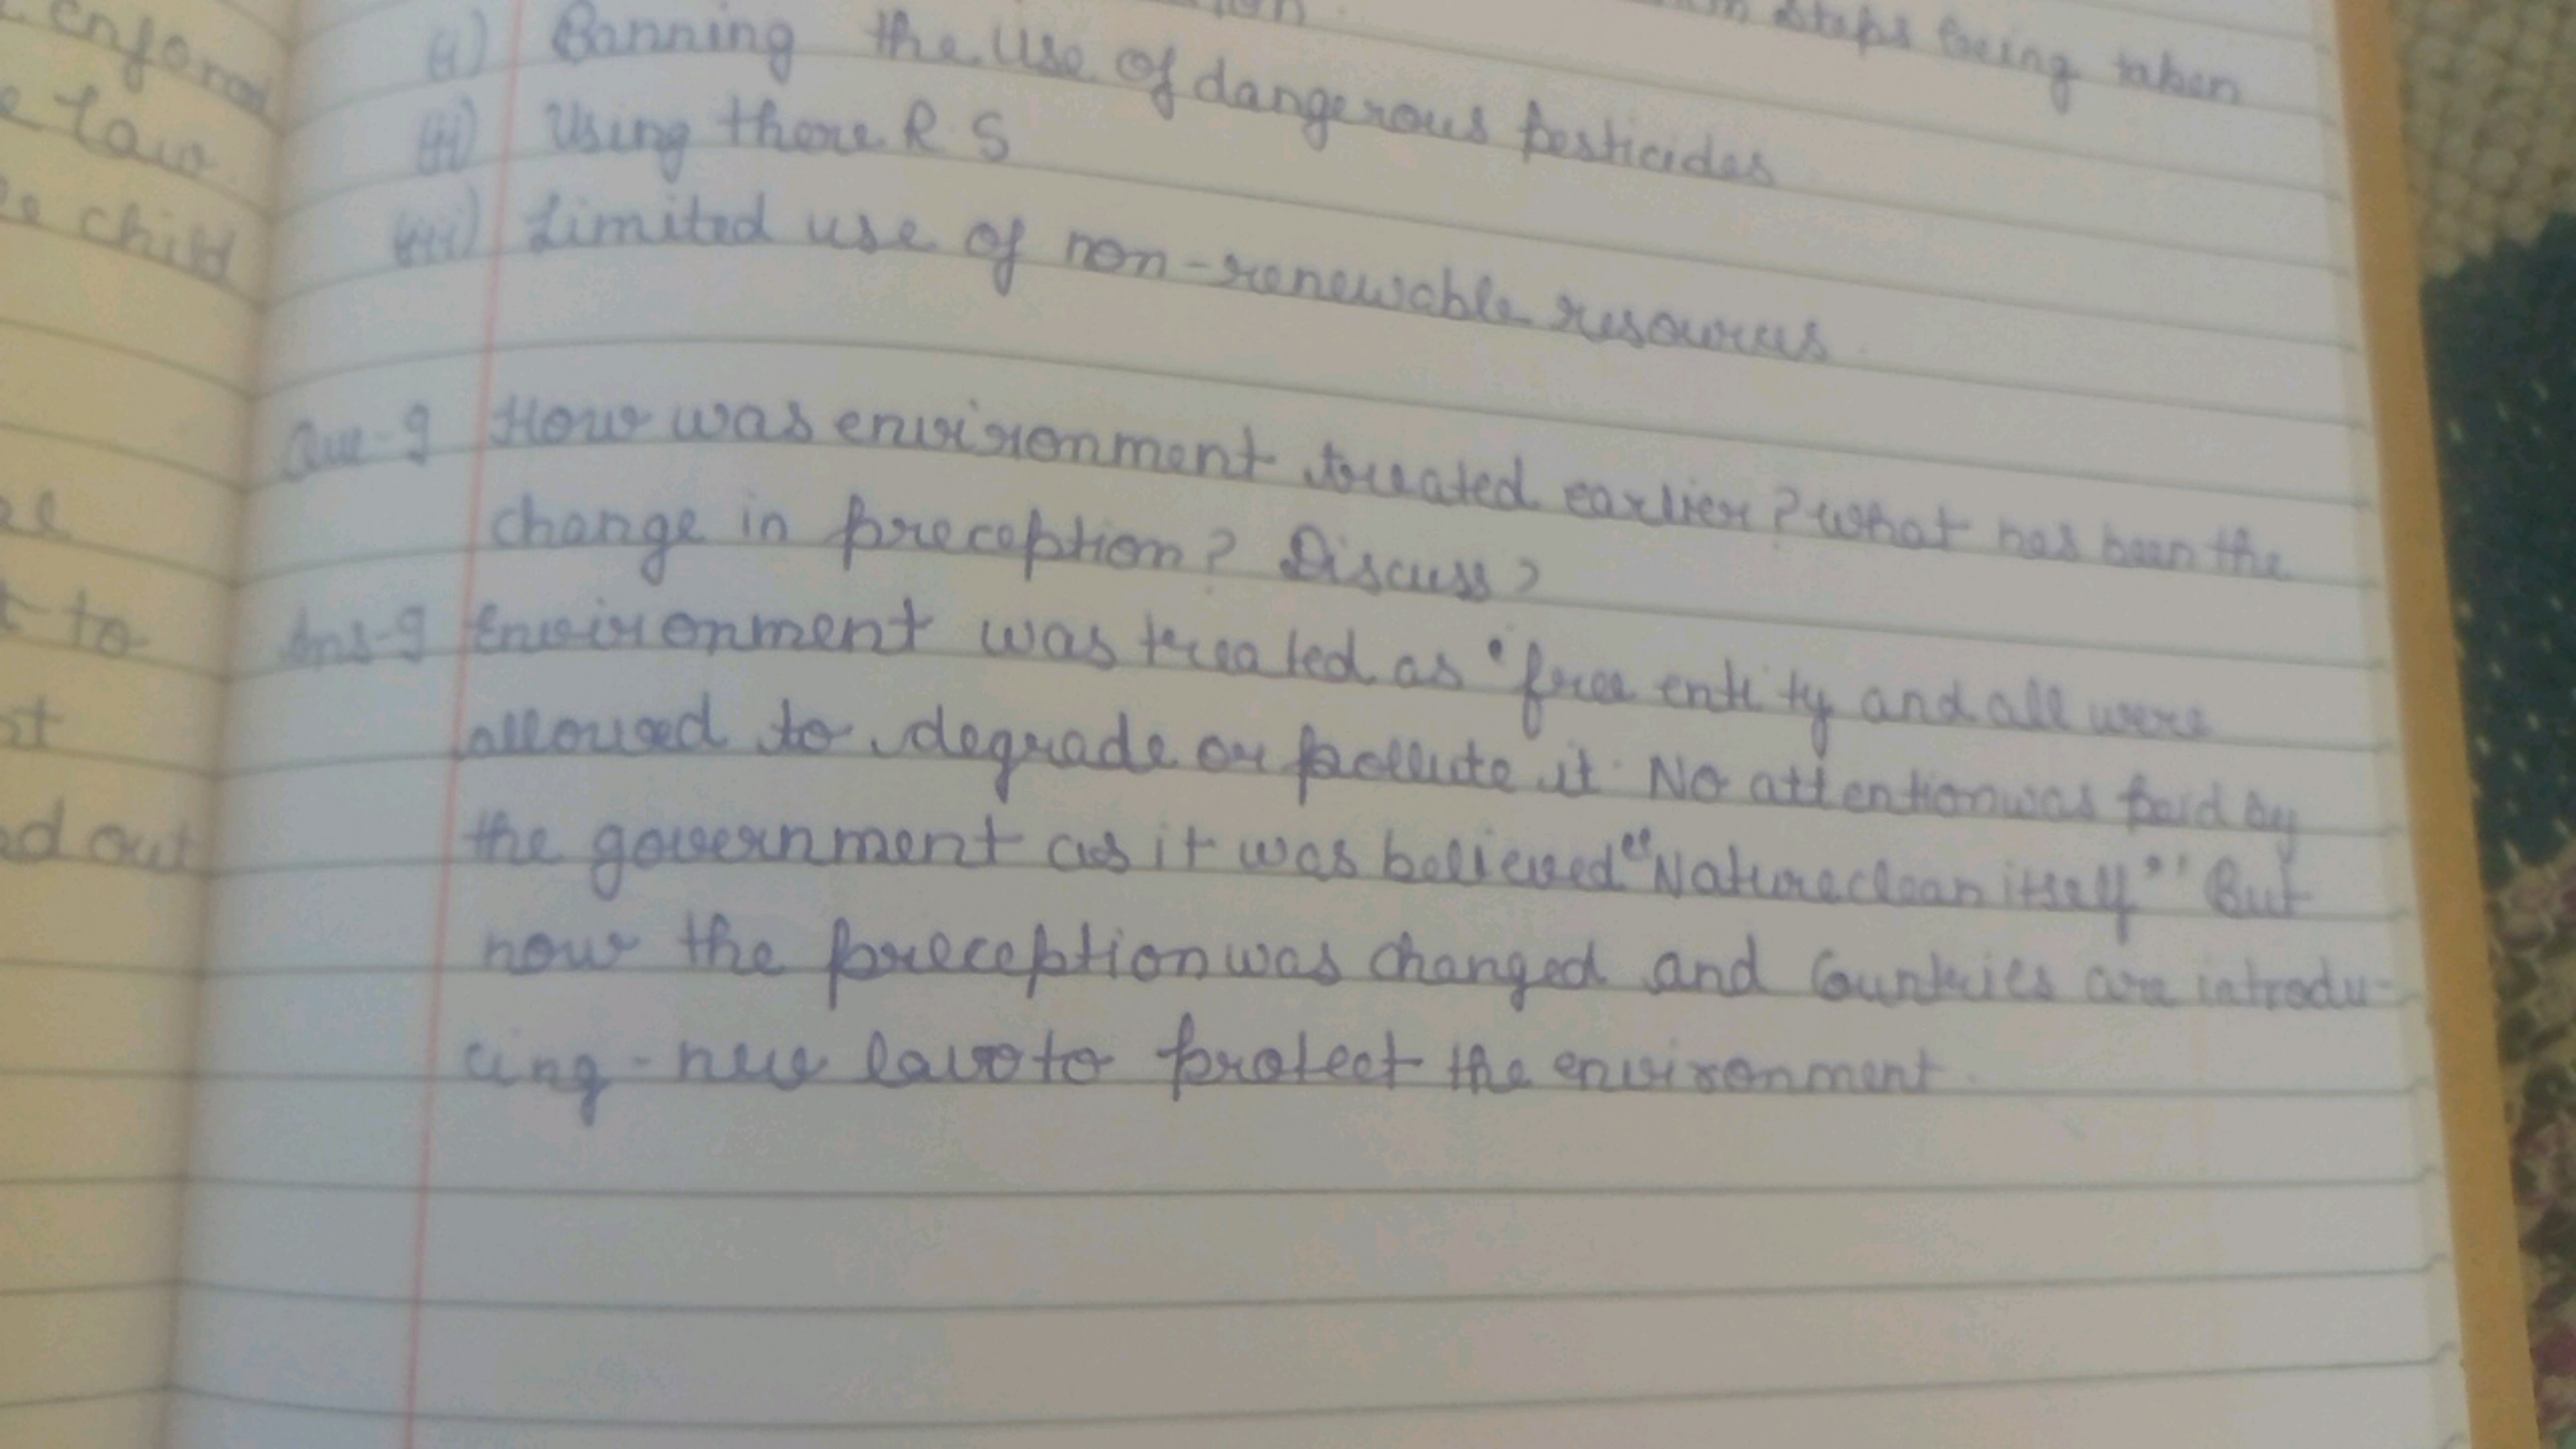 enforced
e law
be child
t to
d out
steps being taken
i) Banning the use of dangerous pesticides
ii) Using there R S
iii) Limited use of non-renewable resources
Que-9 How was environment treated earlier? what has been the
change in preception? Discuss?
Ans-9 Environment was treated as 'free entity and all were
allowed to degrade or pollute it. No attention was paid by
the government as it was believed "Nature clean itself" But
now the preception was changed and Countries are introdu-
cing - new law to protect the environment.